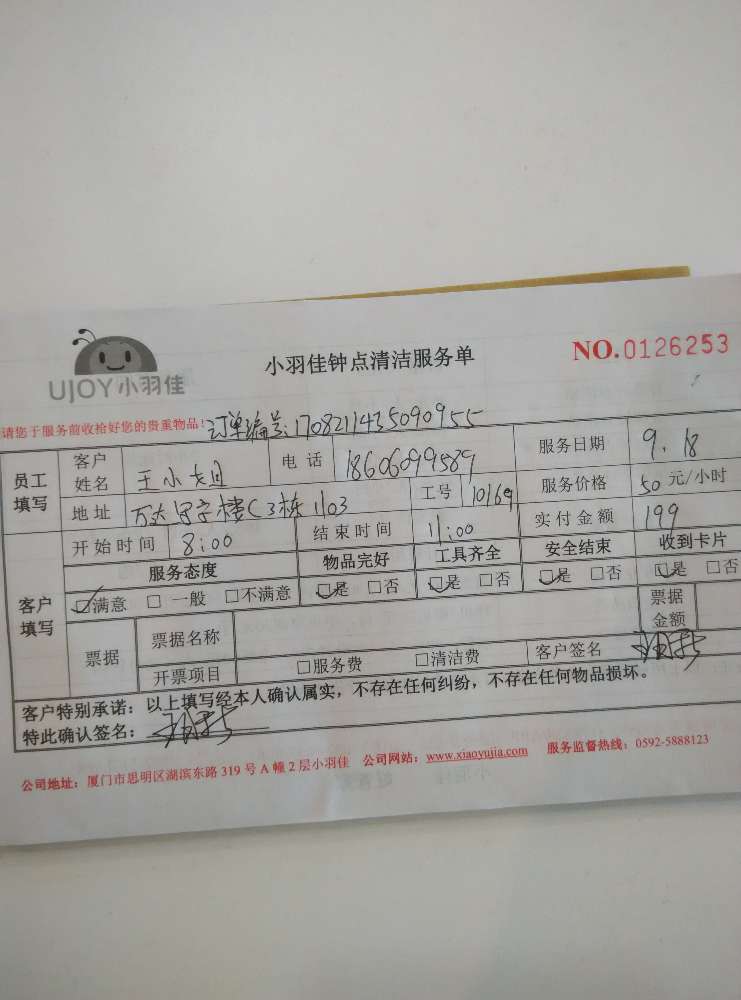 UJOY小羽佳
小羽佳钟点清洁服务单
NO.0126253
请您于服务前收拾好您的贵重物品!
订单编号:1708211435090955
员工填写 客户姓名 王小姐 电话 18606099589 服务日期 9.18
地址 万达写字楼C3栋1103 工号 10169 服务价格 50元/小时
客户填写 开始时间 8:00 结束时间 11:00 实付金额 199
服务态度 物品完好 工具齐全 安全结束 收到卡片
☑满意 □一般 □不满意 ☑是 □否 ☑是 □否 ☑是 □否 ☑是 □否
票据 票据名称 票据金额
开票项目 □服务费 □清洁费 客户签名
客户特别承诺:以上填写经本人确认属实,不存在任何纠纷,不存在任何物品损坏。
特此确认签名:
公司地址:厦门市思明区湖滨东路319号A幢2层小羽佳 公司网站:www.xiaoyujia.com 服务监督热线:0592-5888123